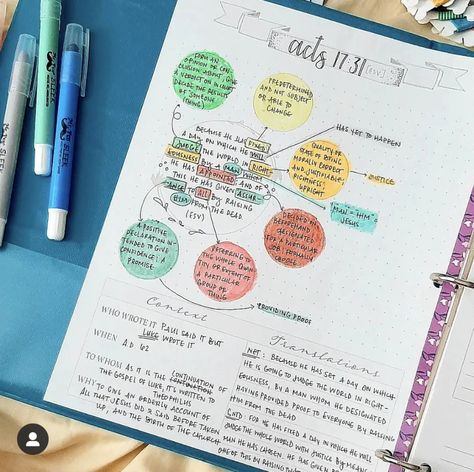 acts 17:31
[ESV]
FORM AN
OPINION OR CON-
CLUSION ABOUT; GIVE
A VERDICT ON IN COURT
DECIDE THE RESULTS
OF SOMEONE
(THING)
PREDETERMINED
AND NOT SUBJECT
OR ABLE TO
CHANGE
HAS YET TO HAPPEN
BECAUSE HE HAS FIXED
A DAY ON WHICH HE WILL
JUDGE THE WORLD IN RIGHT-
EOUSNESS BY A MAN WHOM
HE HAS APPOINTED; AND OF
THIS HE HAS GIVEN ASSUR-
ANCE TO ALL BY RAISING
HIM FROM THE DEAD.
(ESV)
QUALITY OR
STATE OF BEING
MORALLY CORRECT
AND JUSTIFIABLE
RIGHTNESS;
UPRIGHT
JUSTICE
"MAN" = "HIM" =
JESUS
DECIDED
BEFOREHAND
DESIGNATED
FOR A PARTICULAR
JOB; FORMALLY
CHOOSE
A POSITIVE
DECLARATION IN-
TENDED TO GIVE
CONFIDENCE; A
PROMISE
REFERRING TO
THE WHOLE QUAN-
TITY OR EXTENT OF
A PARTICULAR
GROUP OR
THING
PROVIDING PROOF
Context
WHO WROTE IT PAUL SAID IT BUT
LUKE WROTE IT
WHEN A.D. 62
TO WHOM AS IT IS THE CONTINUATION OF
THE GOSPEL OF LUKE, IT'S WRITTEN TO
THEOPHILUS
WHY TO GIVE AN ORDERLY ACCOUNT OF
ALL THAT JESUS DID & SAID BEFORE TAKEN
UP, AND THE BIRTH OF THE CHURCH
Translations
NET: BECAUSE HE HAS SET A DAY ON WHICH
HE IS GOING TO JUDGE THE WORLD IN RIGHT-
EOUSNESS, BY A MAN WHOM HE DESIGNATED
HAVING PROVIDED PROOF TO EVERYONE BY RAISING
HIM FROM THE DEAD.
GND: FOR HE HAS FIXED A DAY ON WHICH HE WILL
JUDGE THE WHOLE WORLD WITH JUSTICE BY MEANS
MAN HE HAS CHOSEN. HE HAS GIVEN
OF THIS BY RAISING